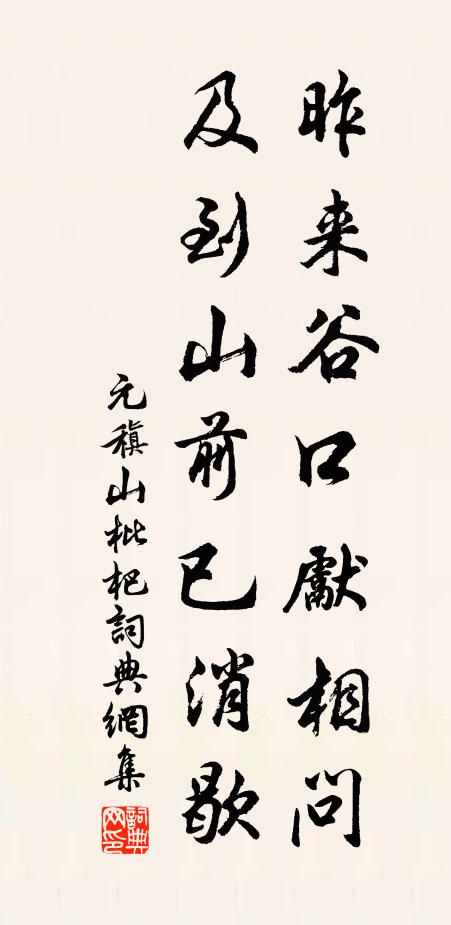 昨来谷口獻相問
及到山前已消歇
元稹山枇杷詞典網集
詞典
网印